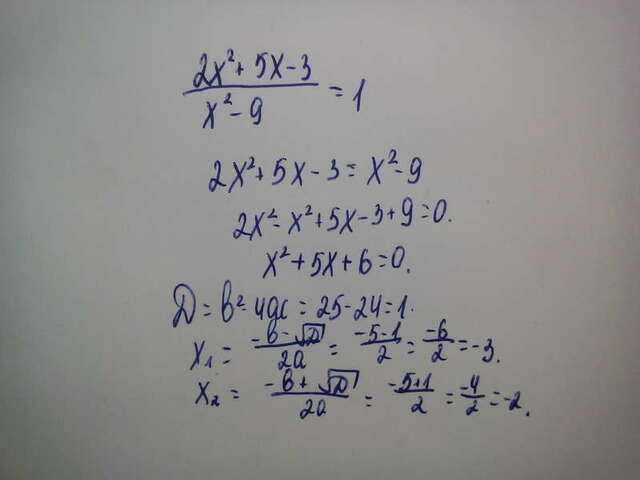 (2x²+5x-3)/(x²-9) = 1
2x²+5x-3=x²-9
2x²-x²+5x-3+9=0.
x²+5x+6=0.
D=b²-4ac=25-24=1.
x₁ = (-b-√D)/(2a) = (-5-1)/2 = -6/2 = -3.
x₂ = (-b+√D)/(2a) = (-5+1)/2 = -4/2 = -2.